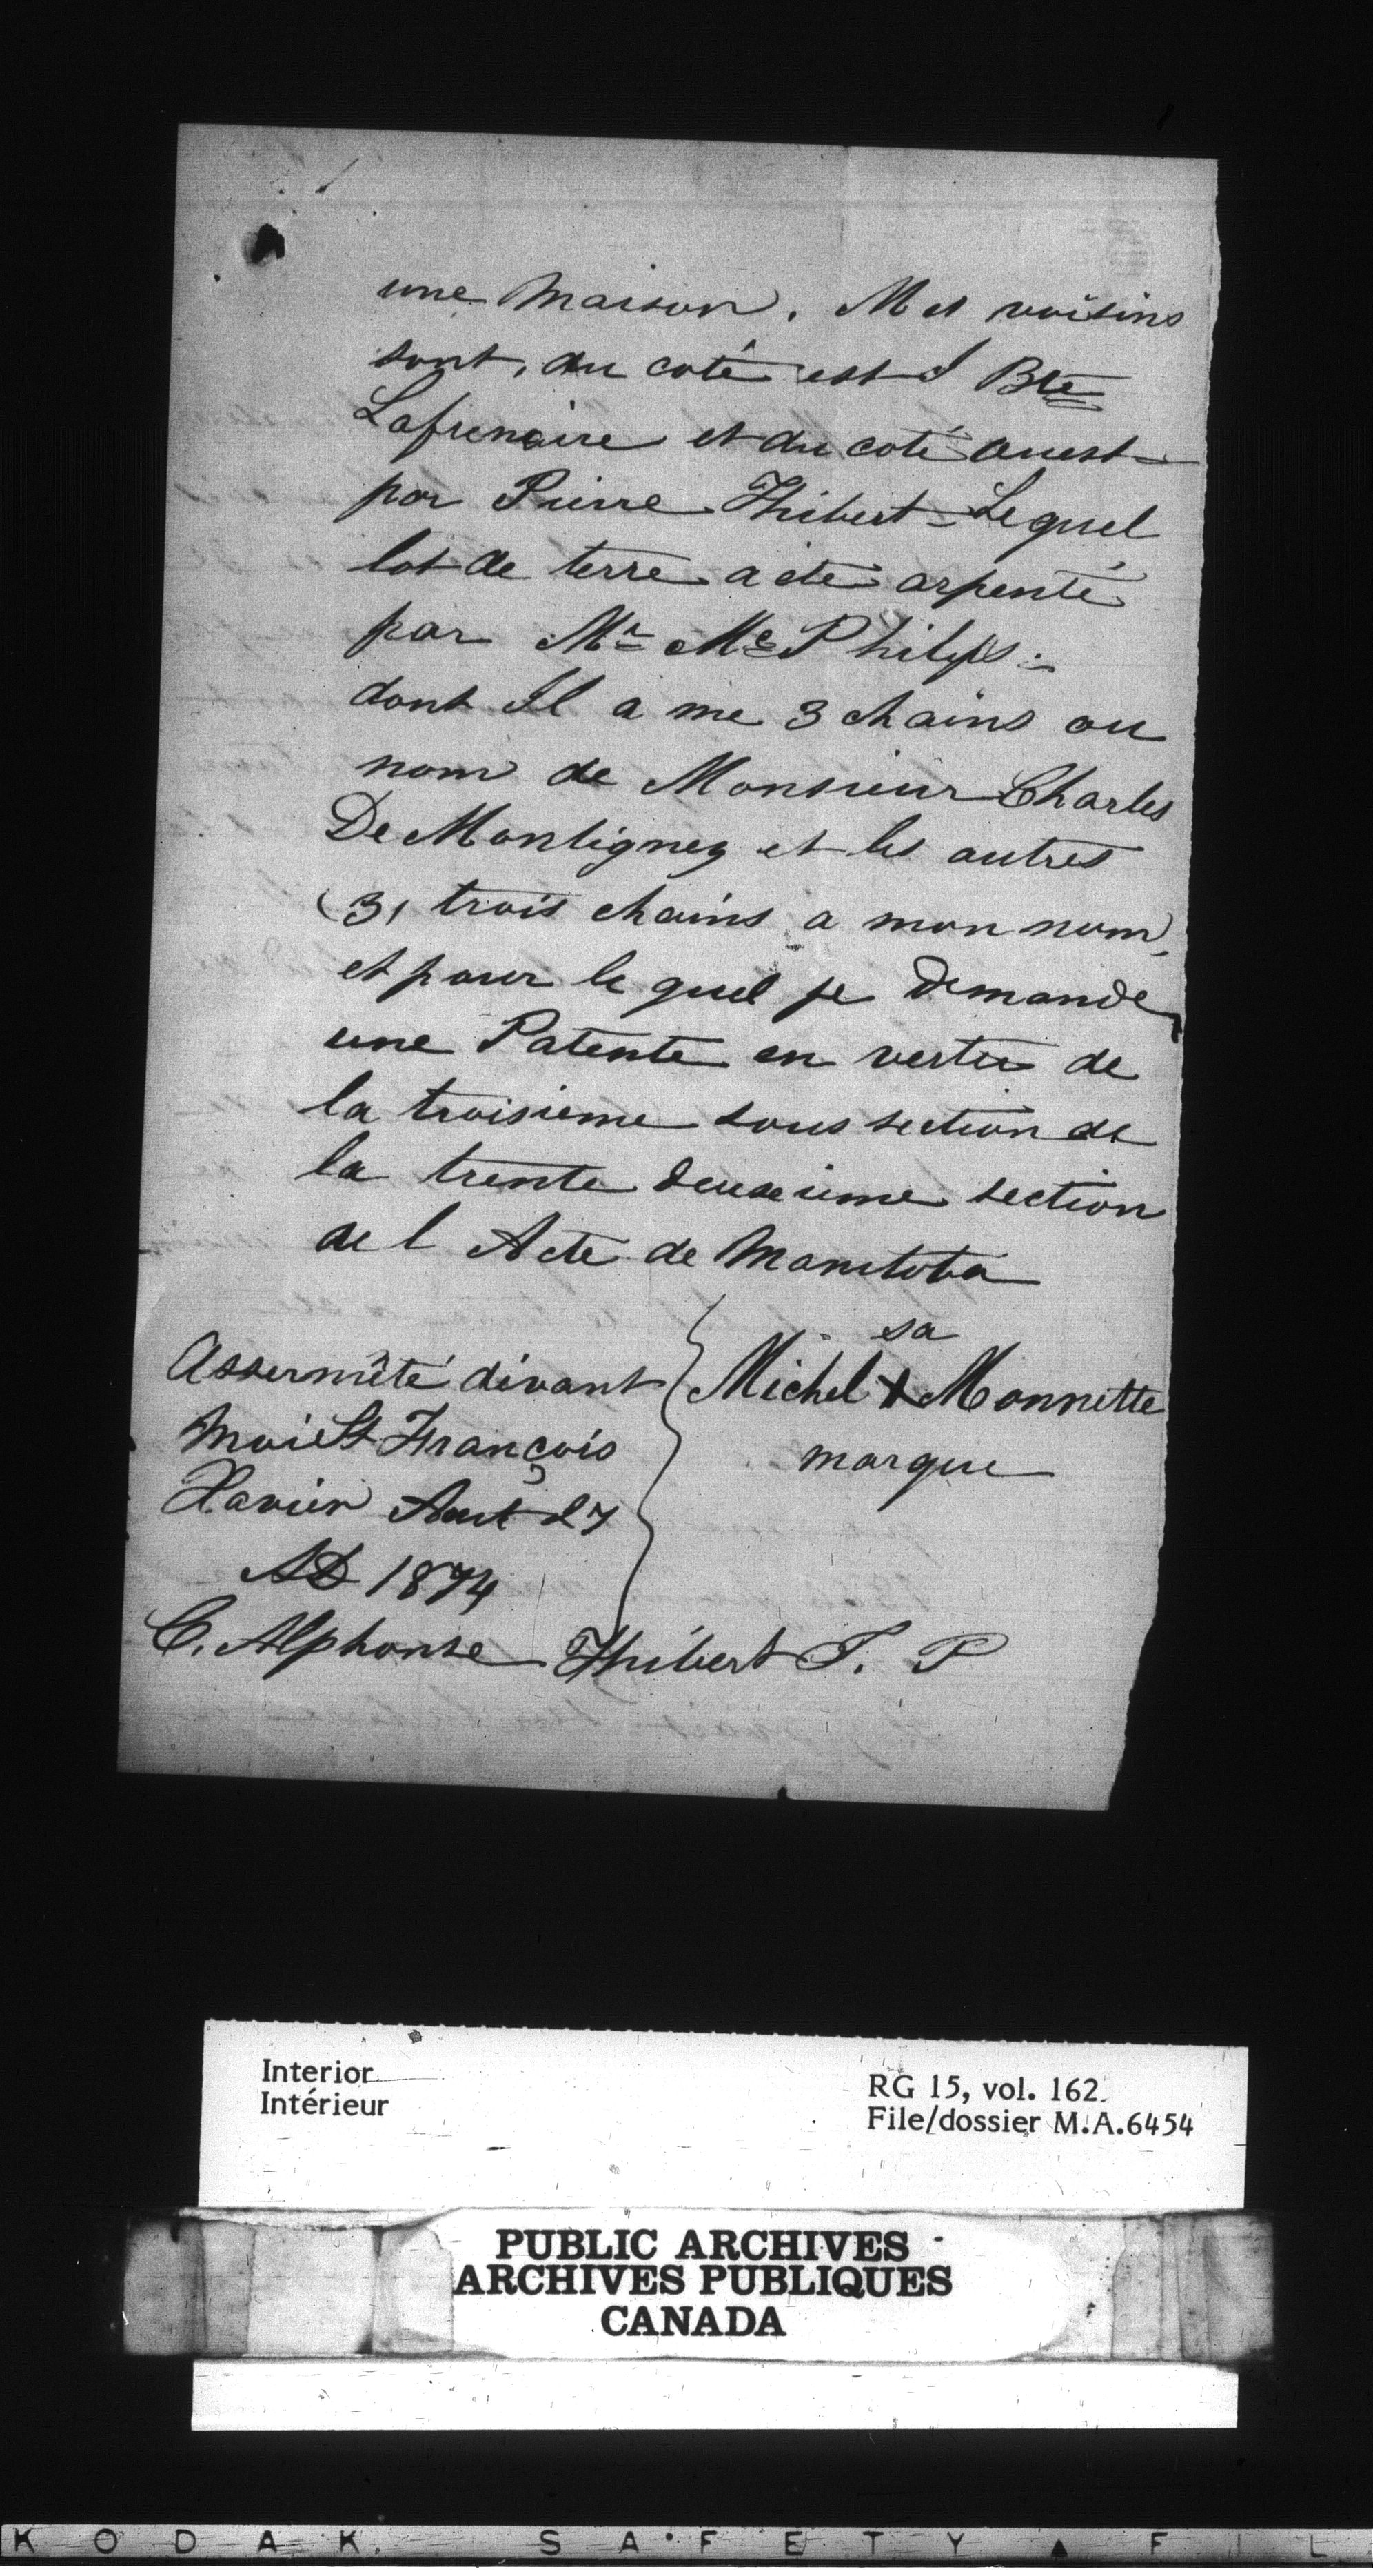 une Maison. Mes voisins
sont, du coté est J Bte
Lafreneire et du coté ouest
par Pierre Thibert - Lequel
lot de terre a été arpenté
par Mr Mc Philips.
dont Il a me 3 chains au
nom de Monsieur Charles
De Montigney et les autres
(3, trois chains a mon nom,
et pour le quel je Demande
une Patente en vertu de
la troisieme sous section de
la trente deuxieme section
de l Acte de Manitoba
sa
Michel X Monnette
marque
Assermêté dévant
moi St François
Xavier Aout 27
AD 1874
C. Alphonse Thibert J. P
Interior
Intérieur
RG 15, vol. 162
File/dossier M.A.6454
PUBLIC ARCHIVES
ARCHIVES PUBLIQUES
CANADA
KODAK SAFETY ▲ FIL